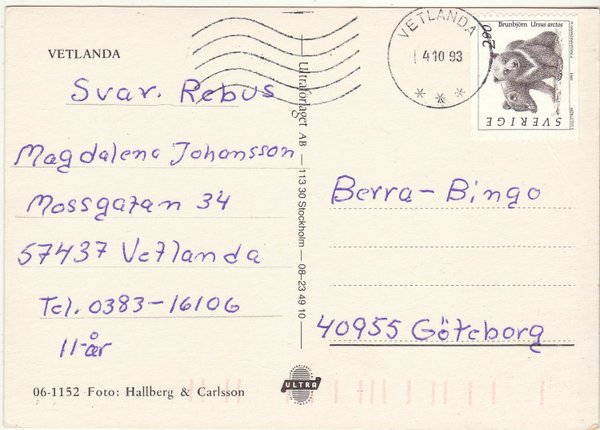 VETLANDA
Svar. Rebus
Magdalena Johansson
Mossgatan 34
57437 Vetlanda
Tel. 0383-16106
11-år
06-1152 Foto: Hallberg & Carlsson
Ultraförlaget AB — 113 30 Stockholm — 08-23 49 10 —
ULTRA
VETLANDA
14 10 93
* * *
Brunbjörn Ursus arctos
290
SVERIGE
Berra-Bingo
40955 Göteborg